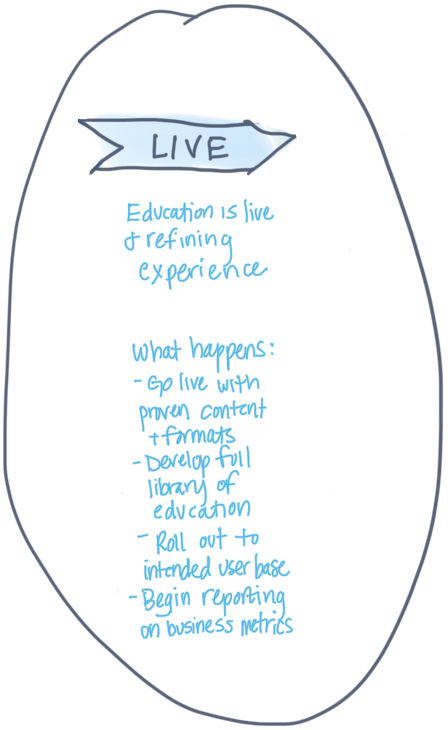 LIVE
Education is live
& refining
experience
What happens:
- Go live with
proven content
+ formats
- Develop full
library of
education
- Roll out to
intended user base
- Begin reporting
on business metrics